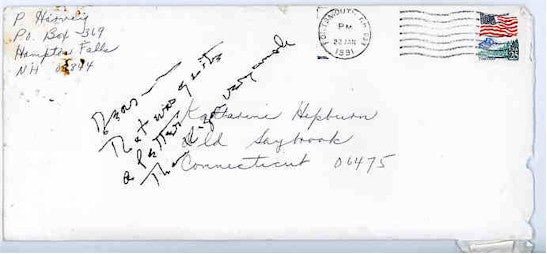 P Harvey
P.O. Box 369
Hampton Falls
NH 03844
PORTSMOUTH, NH 038
PM
23 JAN
1991
Dear
That was quite
a letter
Thank you very much
Katharine Hepburn
Old Saybrook
Connecticut 06475